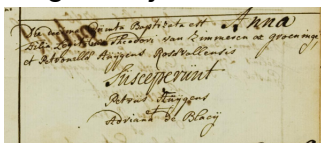 Die dec Baptizata est Anna
filia Theodori van Zimmeren ex groeninge
et Petronillæ Huÿgens Rosvallensis
Susceperunt
Petrus Huÿgens
Adriana de Blaeÿ